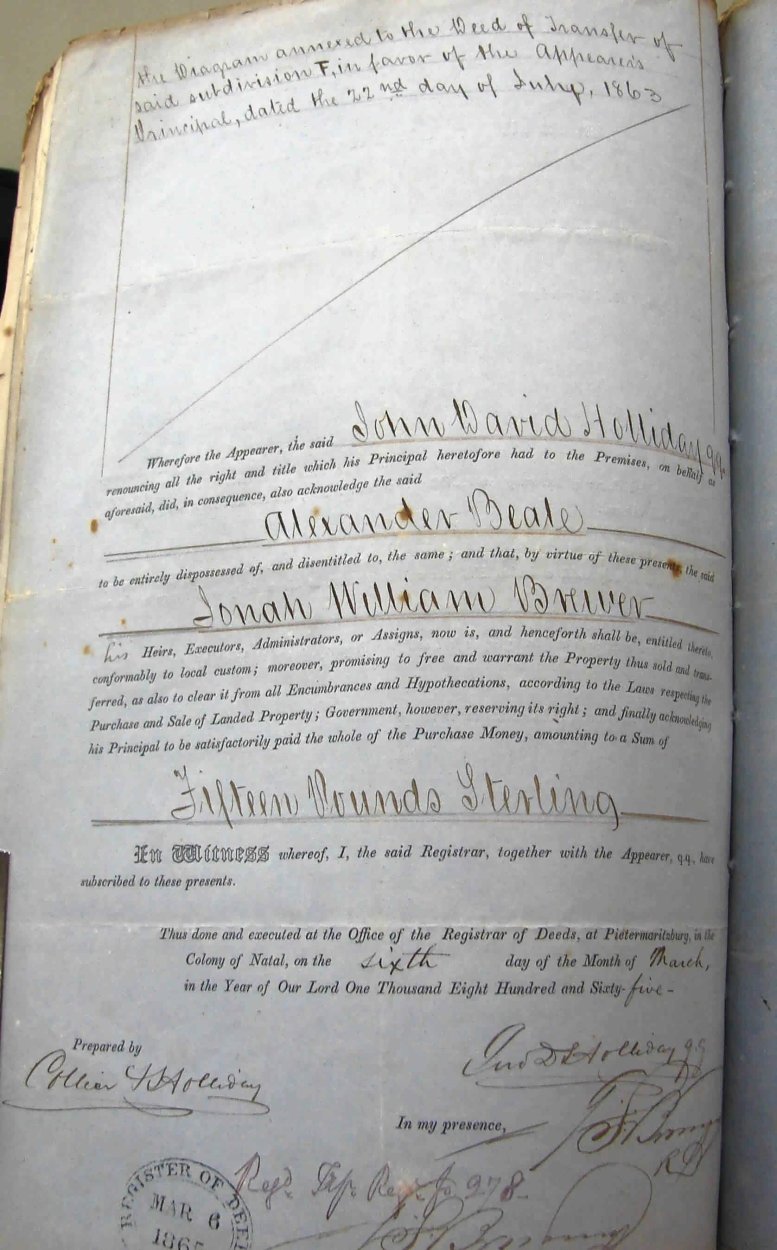 the Diagram annexed to the Deed of Transfer of
said subdivision F, in favor of the Appearer's
Principal, dated the 22nd day of July, 1863
Wherefore the Appearer, the said John David Holliday qq.
renouncing all the right and title which his Principal heretofore had to the Premises, on behalf as
aforesaid, did, in consequence, also acknowledge the said
Alexander Beale
to be entirely dispossessed of, and disentitled to, the same; and that, by virtue of these presents, the said
Jonah William Brewer
his Heirs, Executors, Administrators, or Assigns, now is, and henceforth shall be, entitled thereto,
conformably to local custom; moreover, promising to free and warrant the Property thus sold and trans-
ferred, as also to clear it from all Encumbrances and Hypothecations, according to the Laws respecting the
Purchase and Sale of Landed Property; Government, however, reserving its right; and finally acknowledging
his Principal to be satisfactorily paid the whole of the Purchase Money, amounting to a Sum of
Fifteen Pounds Sterling
In Witness whereof, I, the said Registrar, together with the Appearer, qq. have
subscribed to these presents.
Thus done and executed at the Office of the Registrar of Deeds, at Pietermaritzburg, in the
Colony of Natal, on the sixth day of the Month of March,
in the Year of Our Lord One Thousand Eight Hundred and Sixty-five-
Prepared by
Jno D Holliday qq
Collier Holliday
In my presence,
RD
Regd. 278
REGISTER OF DEE
MAR 6
1865